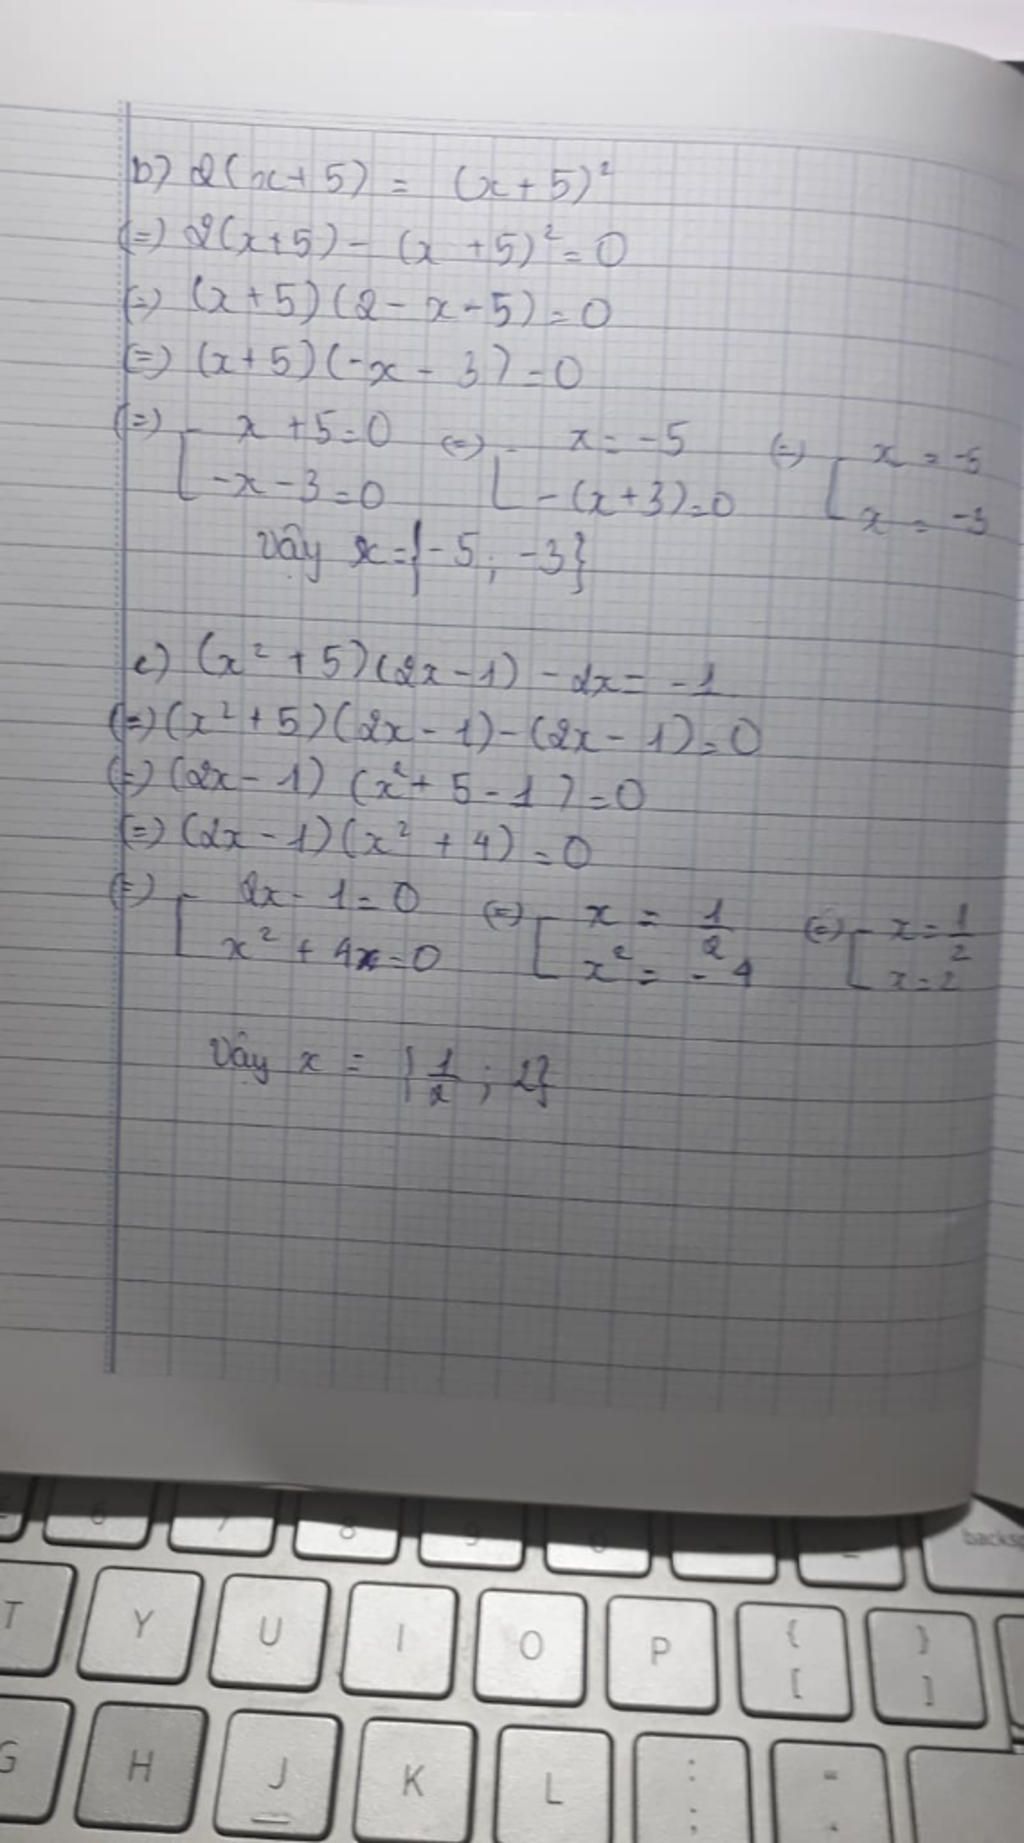 b) 2(x+5) = (x+5)²
(=) 2(x+5) - (x +5)² = 0
(=) (x+5)(2 - x - 5) = 0
(=) (x+5)(-x - 3) = 0
(=) [ x + 5 = 0 (=) [ x = -5 (=) [ x = -5
-x - 3 = 0 -(x+3) = 0 x = -3
Vậy x = {-5; -3}
c) (x² + 5)(2x - 1) - 2x = -1
(=) (x² + 5)(2x - 1) - (2x - 1) = 0
(=) (2x - 1) (x² + 5 - 1) = 0
(=) (2x - 1)(x² + 4) = 0
(=) [ 2x - 1 = 0 (=) [ x = 1/2 (=) [ x = 1/2
x² + 4x = 0 x² = -4 x = 2
Vậy x = {1/2; 2}
6 7 8 9 0 - backsp
T Y U I O P { [ } ]
G H J K L : ; "